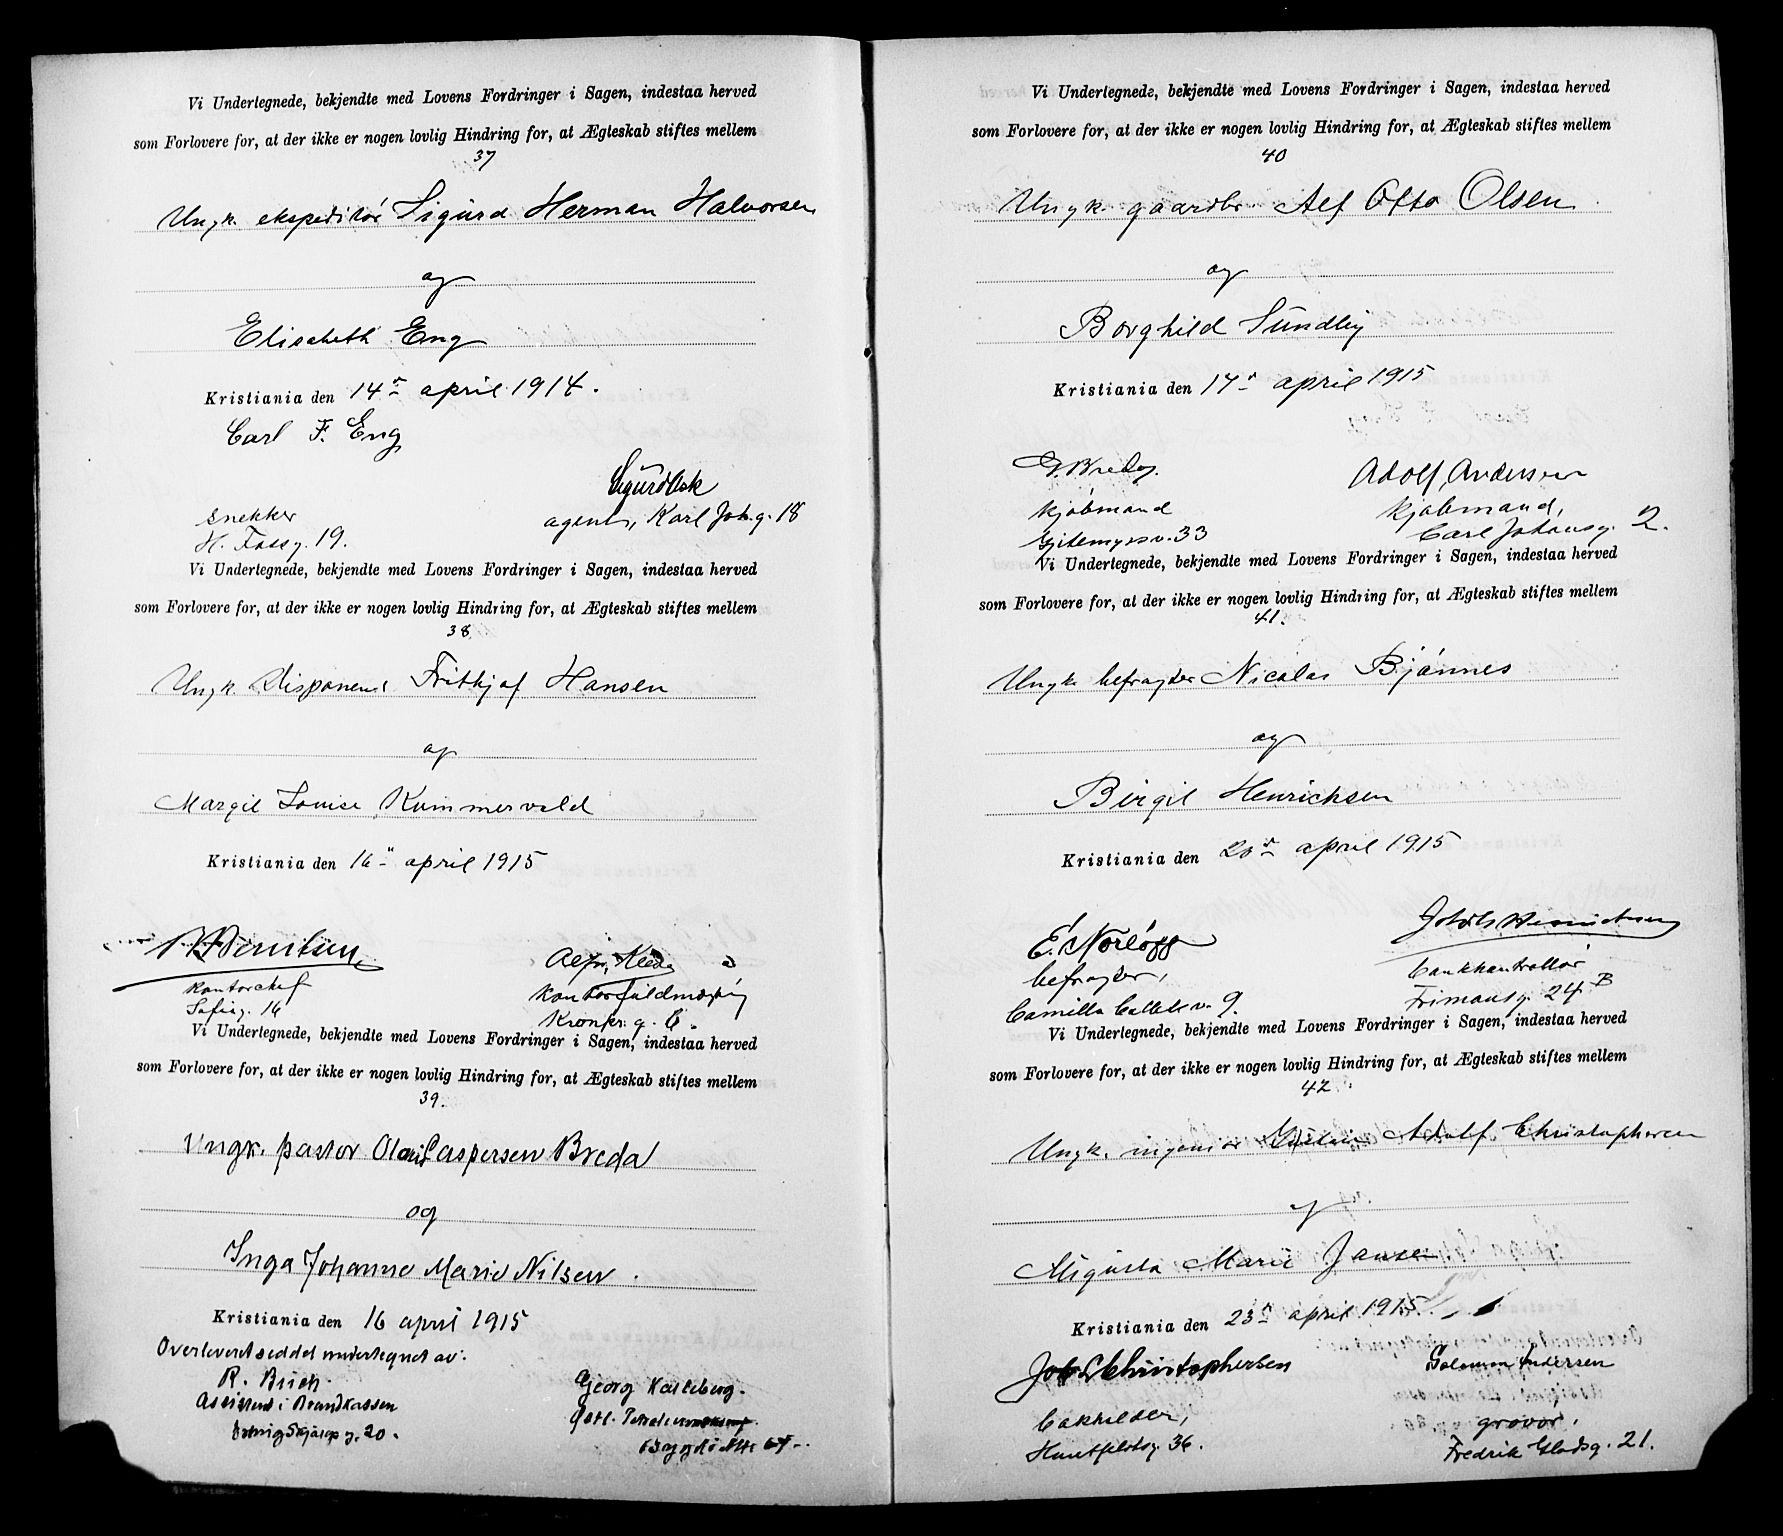 Vi Undertegnede, bekjendte med Lovens Fordringer i Sagen, indestaa herved
som Forlovere for, at der ikke er nogen lovlig Hindring for, at Ægteskab stiftes mellem
37
Ungk. ekspeditör Sigurd Herman Halvorsen
og
Elisabeth Eng
Kristiania den 14de april 1914.
Carl F. Eng
snekker
H. Fossg. 19.
agent, Karl Joh. g. 18
Vi Undertegnede, bekjendte med Lovens Fordringer i Sagen, indestaa herved
som Forlovere for, at der ikke er nogen lovlig Hindring for, at Ægteskab stiftes mellem
38
Ungk. Disponent Frithjof Hansen
og
Margit Louise Kummervold
Kristiania den 16de april 1915
Kontorchef
Sofieg. 16
Kontorfuldmægtig
Kronpr. g. 6.
Vi Undertegnede, bekjendte med Lovens Fordringer i Sagen, indestaa herved
som Forlovere for, at der ikke er nogen lovlig Hindring for, at Ægteskab stiftes mellem
39.
Ungk. pastor Olaus Caspersen Breda
og
Inga Johanne Marie Nilsen.
Kristiania den 16 april 1915
Overleveret seddel undertegnet av:
R. Buch.
Assistent i Brandkassen
20.
Georg Karlsberg.
Vi Undertegnede, bekjendte med Lovens Fordringer i Sagen, indestaa herved
som Forlovere for, at der ikke er nogen lovlig Hindring for, at Ægteskab stiftes mellem
40
Ungk. gaardbr. Alf Otto Olsen
og
Borghild Sundby
Kristiania den 17de april 1915
G. Bredeg.
kjöbmand
Gjetemyrsv. 33
Adolf Andersen
kjøbmand,
Carl Johansg. 2.
Vi Undertegnede, bekjendte med Lovens Fordringer i Sagen, indestaa herved
som Forlovere for, at der ikke er nogen lovlig Hindring for, at Ægteskab stiftes mellem
41.
Ungk. befragter Nicolai Bjönnes
og
Birgit Henrichsen
Kristiania den 20de april 1915
E. Norløgg
befragter,
Camilla Colletts v. 9.
Henrichsen
bankkontrollör
Frimansg. 24 B
Vi Undertegnede, bekjendte med Lovens Fordringer i Sagen, indestaa herved
som Forlovere for, at der ikke er nogen lovlig Hindring for, at Ægteskab stiftes mellem
42
Ungk. ingeniör Adolf Christophersen
og
Augusta Marie Jansen
Kristiania den 23de april 1915.
Joh. Christophersen
bokholder,
Huitfeldtsg. 36.
Solomon Andersen
gravör,
Fredrik Gladsg. 21.